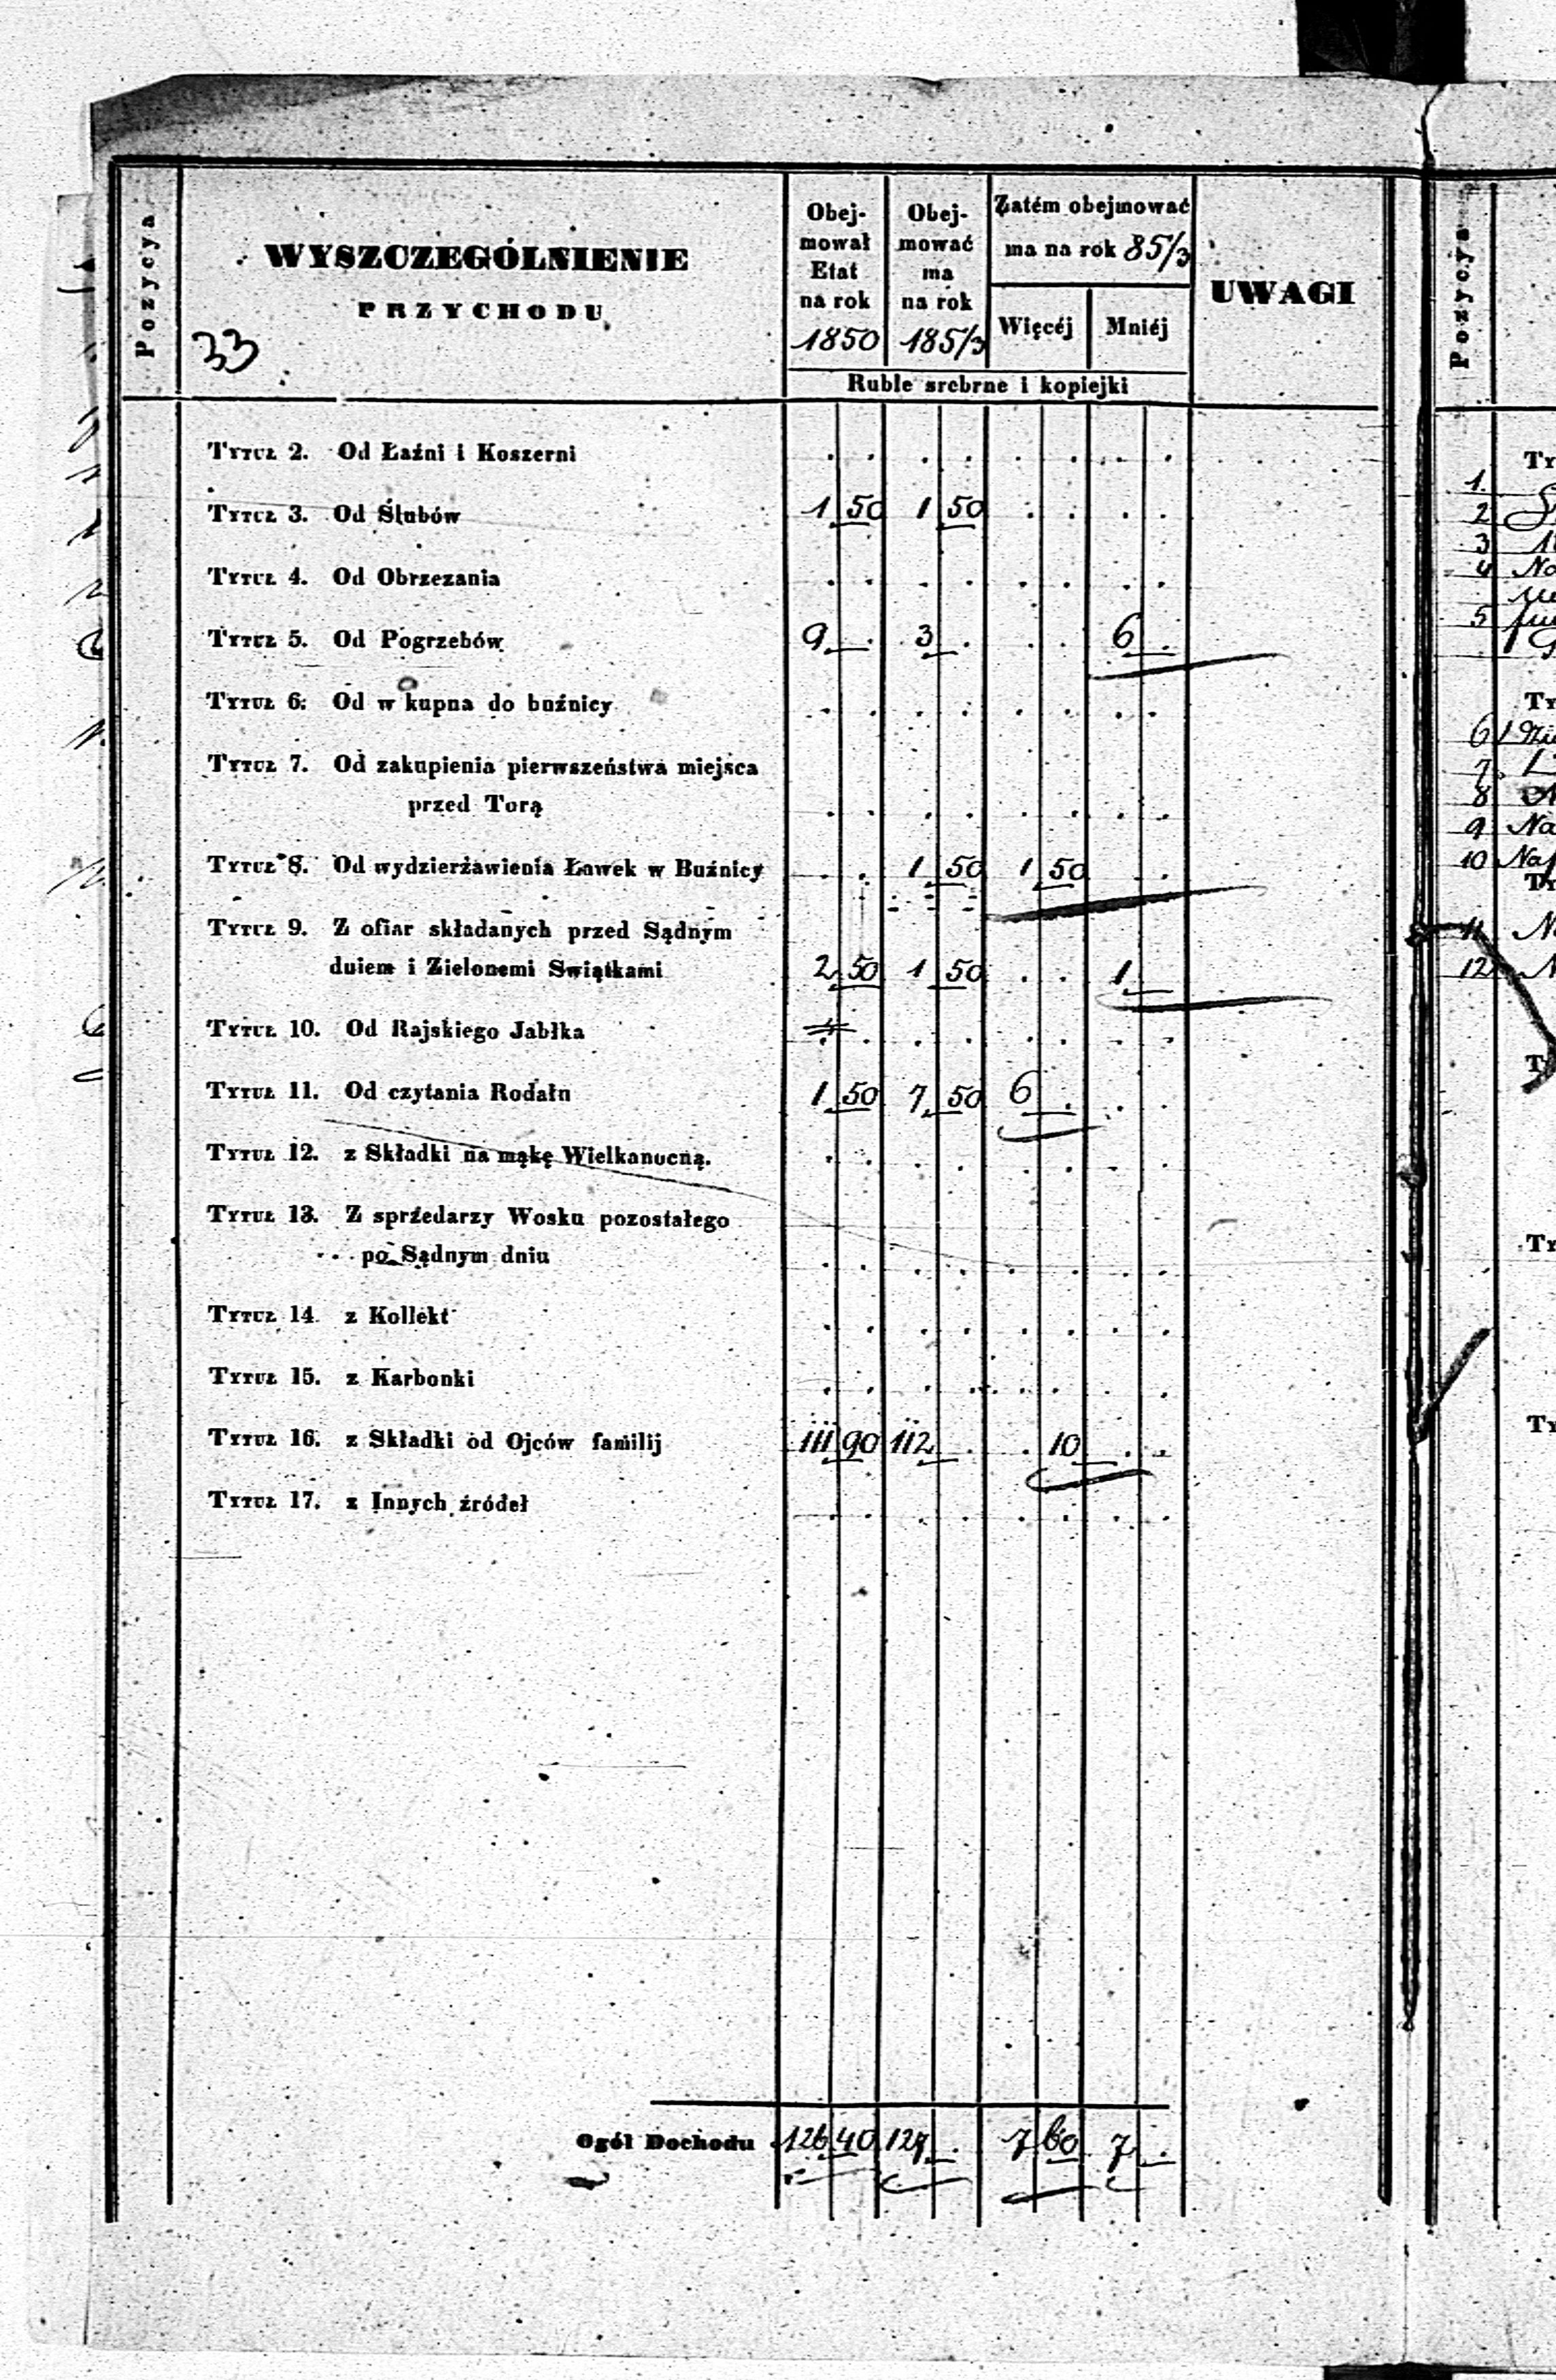 Pozycya
WYSZCZEGÓLNIENIE
PRZYCHODU
33
Obej-
mował
Etat
na rok
1850
Obej-
mować
ma
na rok
185/3
Zatém obejmować
ma na rok 85/3
Więcéj Mniéj
UWAGI
Ruble srebrne i kopiejki
TYTUŁ 2. Od Łaźni i Koszerni . . . . . . . .
TYTUŁ 3. Od Ślubów 1 50 1 50 . . . .
TYTUŁ 4. Od Obrzezania . . . . . . . .
TYTUŁ 5. Od Pogrzebów 9 . 3 . . . 6 .
TYTUŁ 6. Od w kupna do buźnicy . . . . . . . .
TYTUŁ 7. Od zakupienia pierwszeństwa miejsca
przed Torą . . . . . . . .
TYTUŁ 8. Od wydzierżawienia Ławek w Buźnicy . . 1 50 1 50 . .
TYTUŁ 9. Z ofiar składanych przed Sądnym
dniem i Zielonemi Swiątkami 2 50 1 50 . . 1
TYTUŁ 10. Od Rajskiego Jabłka . . . . . . . .
TYTUŁ 11. Od czytania Rodału 1 50 7 50 6 . . .
TYTUŁ 12. z Składki na mąkę Wielkanocną. . . . . . . . .
TYTUŁ 13. Z sprzedarzy Wosku pozostałego
po Sądnym dniu . . . . . . . .
TYTUŁ 14. z Kollekt . . . . . . . .
TYTUŁ 15. z Karbonki . . . . . . . .
TYTUŁ 16. z Składki od Ojców familij 111 90 112 . . 10 . .
TYTUŁ 17. z Innych źródeł . . . . . . . .
Ogół Dochodu 126 40 127 . 7 60 7 .
Pozycya
1
2
3
4 Na
5
6
7
8
9 Na
10 Na
11
12